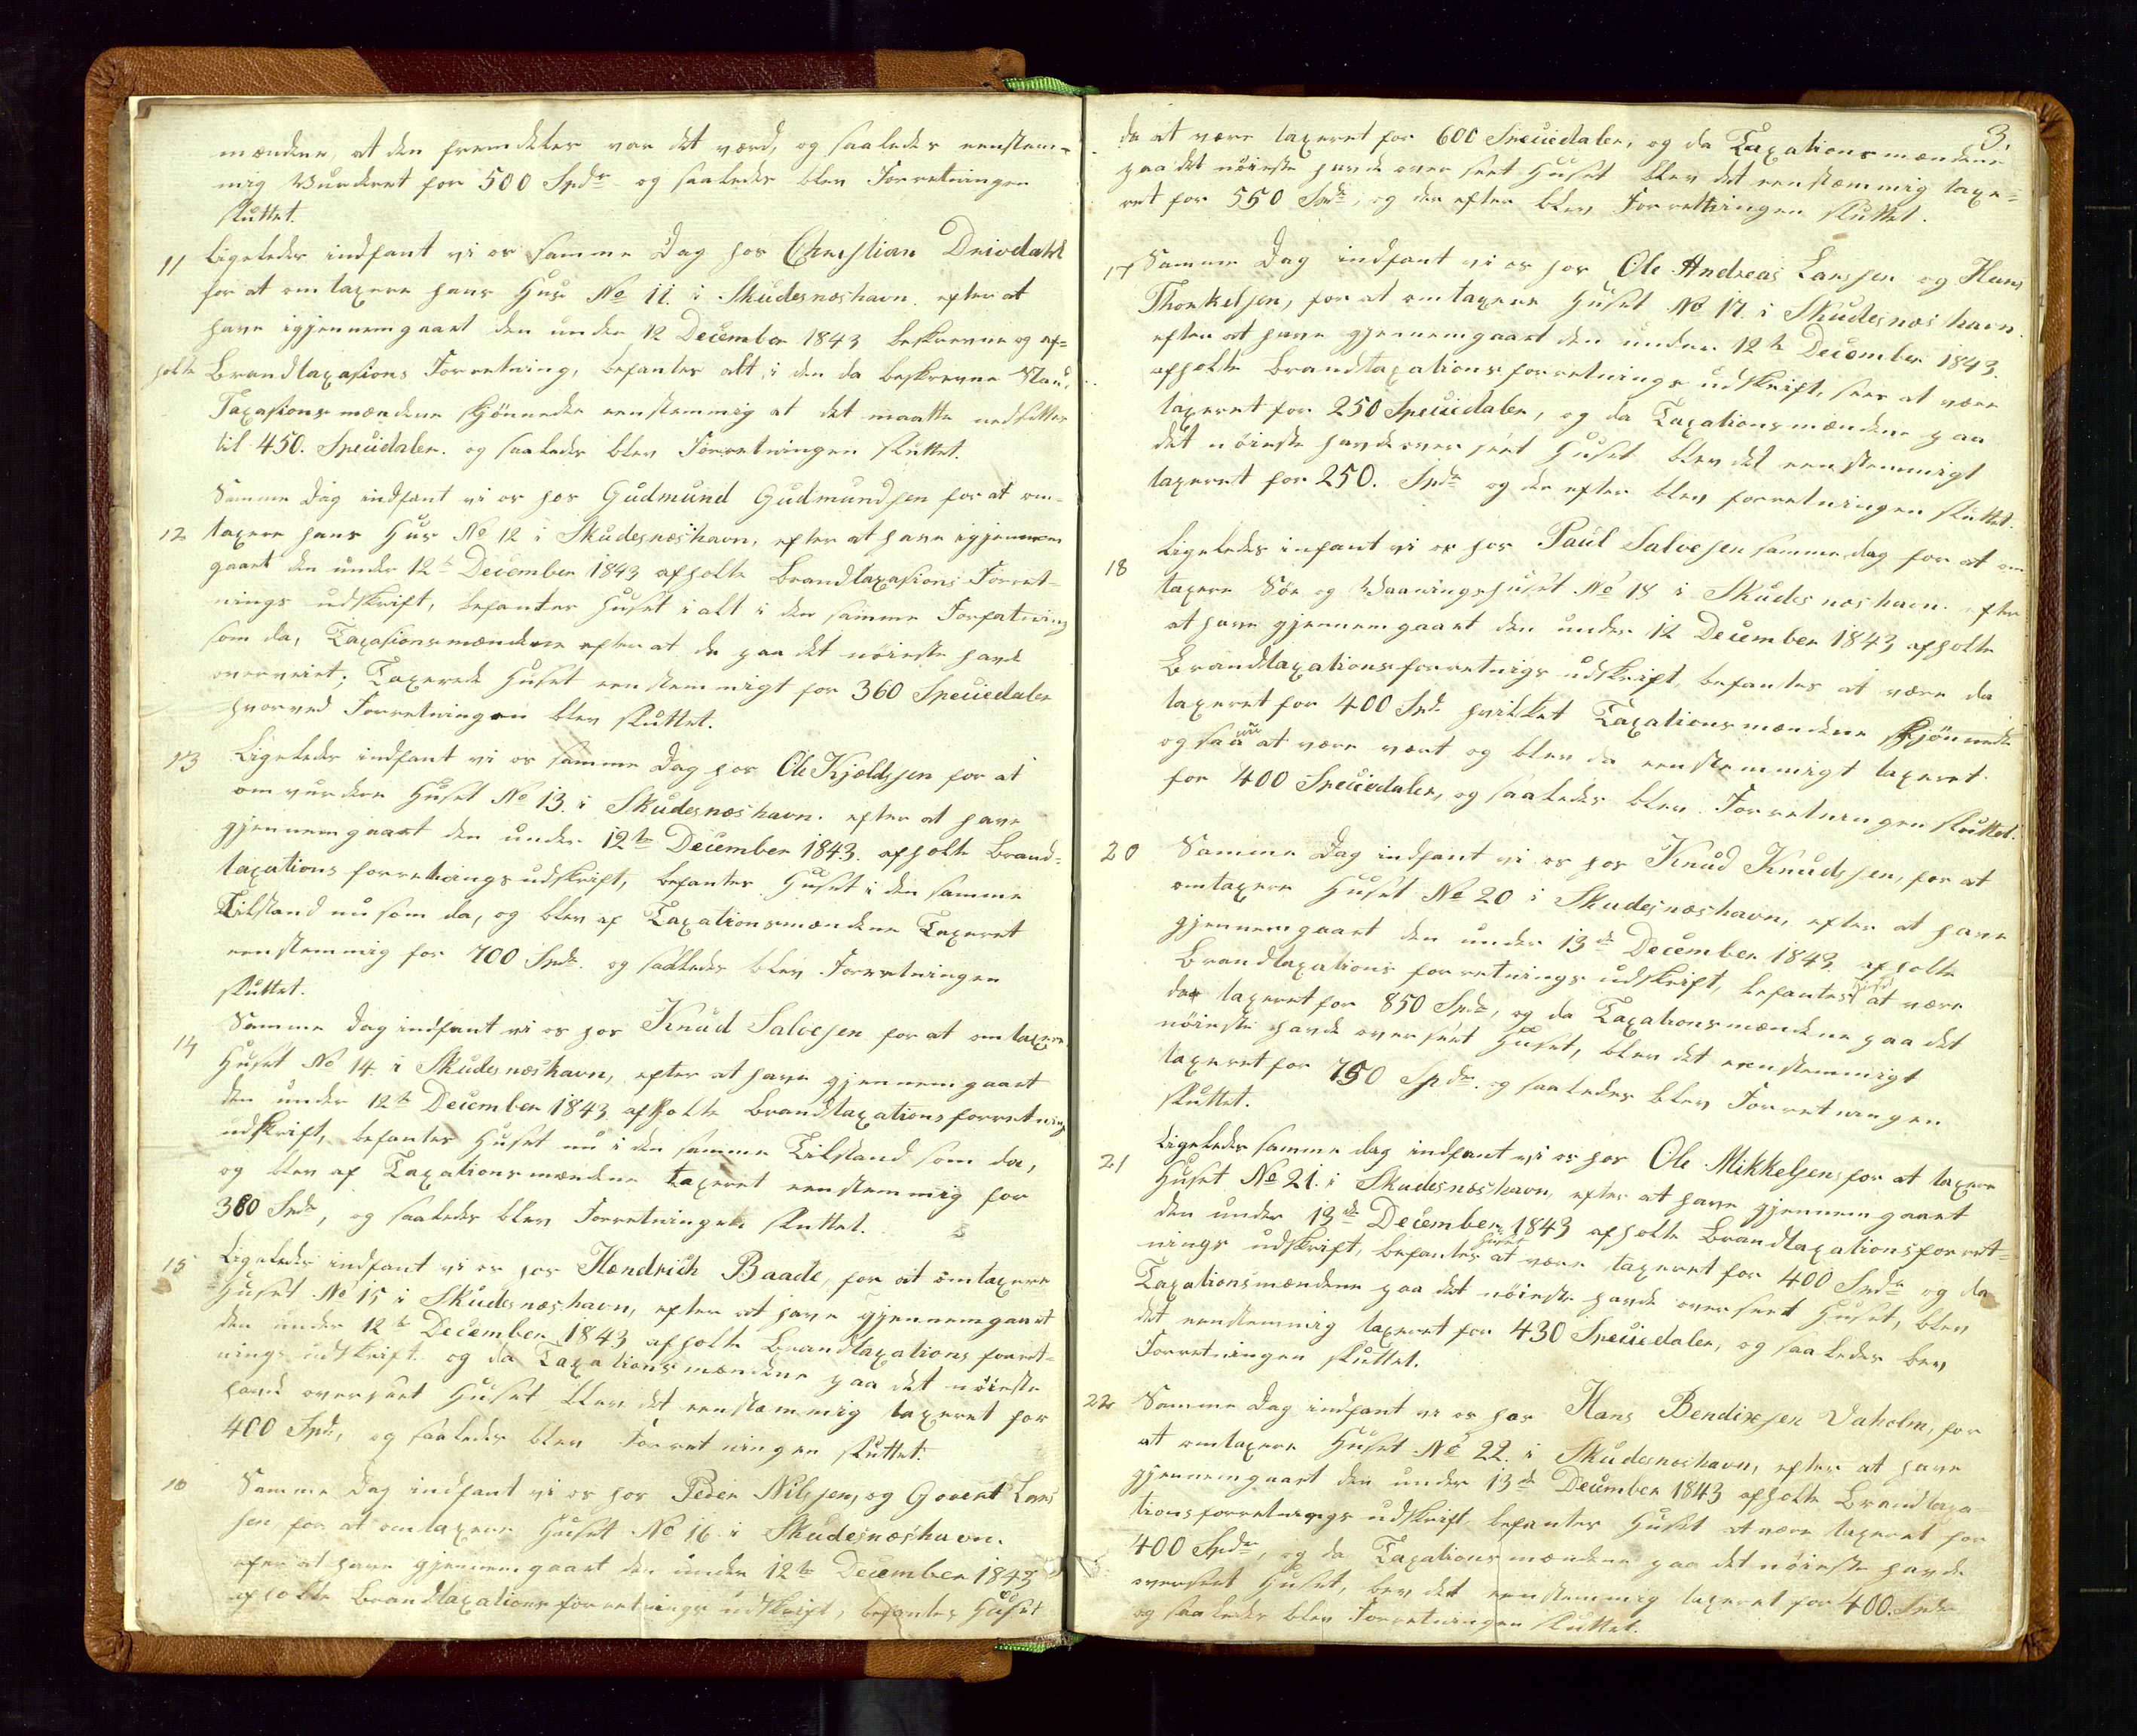 mændene, at den fremdeles var det værd, og saaledes eenstem-
mig Vurderet for 500 Spdr. og saaledes blev Forretningen
sluttet.
11 Ligeledes indfant vi os samme Dag hos Christian Drivdahl
for at omtaxere hans Huus No 11. i Skudesnæshavn. efter at
have igjennemgaaet den under 12 December 1843 beskrevne og af=
holte Brandtaxasions Forretning, befantes alt i den da beskrevne Stand,
Taxasionsmændene skjönnede eenstemmig at det maatte nedsættes
til 450. Speciedaler. og saaledes blev Forretningen sluttet.
Samme Dag indfant vi os hos Gudmund Gudmundsen for at om-
12 taxere hans Huus No 12 i Skudesnæshavn, efter at have igjennem
gaaet den under 12te December 1843 afholte Brandtaxasions Forret-
nings udskrift, befantes Huset i alt i den samme Forfatning
som da, Taxasionsmændene efter at de paa det nöieste havde
overveiet; Taxerede Huset eenstemmigt for 360 Speciedaler
hvorved Forretningen blev sluttet.
13 Ligeledes indfant vi os samme Dag hos Ole Kjeldssen for at
omvurdere Huset No 13. i Skudesnæshavn. efter at have
gjennemgaaet den under 12te December 1843. afholte Brand-
taxations forretnings udskrift, befantes Huset i den samme
Tilstand nu som da, og blev af Taxationsmændene Taxeret
eenstemmig for 700 Spdr. og saaledes blev Forretningen
sluttet.
14 Samme Dag indfant vi os hos Knud Salvesen for at omtaxere
Huset No 14. i Skudesnæshavn, efter at have gjennemgaaet
den under 12te December 1843 afholte Brandtaxationsforretning
udskrift, befantes Huset nu i den samme Tilstand som da,
og blev af Taxationsmændene taxeret eenstemmig for
360 Spdr, og saaledes blev Forretningen sluttet.
15 Ligeledes indfant vi os hos Hendrich Baade, for at omtaxere
Huset No 15 i Skudesnæshavn, efter at have gjennemgaaet
den under 12te December 1843 afholte Brandtaxations forret-
nings udskrift. og da Taxationsmændene paa det nöieste
havde overseet Huset blev det eenstemmig taxeret for
400 Spdr, og saaledes blev Forretningen sluttet.
16 Samme Dag indfant vi os hos Peder Nilssen, og Govert Lars
sen for at omtaxere Huset No 16 i Skudesnæshavn.
efter at have gjennemgaaet den under 12te December 1843
afholte Brandtaxations forretnings udskrift, befantes Huset
3.
da at være taxeret for 600 Speciedaler, og da Taxationsmændene
paa det nöieste havde overseet Huset blev det eenstemmig taxe=
ret for 550 Spdr; og der efter blev Forretningen sluttet.
17 Samme Dag indfant vi os hos Ole Andreas Larssen og Hans
Thorkelsen, for at omtaxere Huset No 17. i Skudesnæshavn.
efter at have gjennemgaaet den under 12te December 1843.
afholte Brandtaxationsforretnings udskrift, sees at være
taxeret for 250 Speciedaler, og da Taxationsmændene paa
det nöieste havde overseet Huset blev det eenstemmigt
taxeret for 250. Spdr og der efter blev forretningen sluttet.
18 Ligeledes infant vi os hos Paul Salvesen samme dag for at om
taxere Söe og Vaaningshuset No 18 i Skudesnæshavn. efter
at have gjennemgaaet den under 12 December 1843 afholte
Brandtaxationsforretnigs udskrift befantes at være da
taxeret for 400 Spd. hvilket Taxationsmændene skjönnede
ogsaa nu at være vært og blev da eenstemmigt taxeret
for 400 Speciedaler, og saaledes blev Forretningen sluttet.
20 Samme Dag indfant vi os hos Knud Knudssen, for at
omtaxere Huset No 20 i Skudesnæshavn, efter at have
gjennemgaaet den under 13de December 1843 afholte
Brandtaxations forretnings udskrift, befantes Huset at være
da taxeret for 850 Spdr, og da Taxationsmændene paa det
nöieste havde overseet Huset, blev det eenstemmigt
taxeret for 750 Spdr. og saaledes blev Forretningen
sluttet.
21 Ligeledes samme dag indfant vi os hos Ole Mikkelsen, for at taxere
Huset No 21. i Skudesnæshavn, efter at have gjennemgaaet
den under 13de December 1843 afholte Brandtaxationsforret-
nings udskrift, befantes Huset at være taxeret for 400 Spdr og da
Taxationsmændene paa det nöieste havde overseet Huset, blev
det eenstemmig taxeret for 430 Speciedaler, og saaledes bev
Forretningen sluttet.
22 Samme Dag indfant vi os hos Hans Bendixsen Vaholm, for
at omtaxere Huset No 22. i Skudesnæshavn, efter at have
gjennemgaaet den under 13de December 1843 afholte Brandtaxa-
tionsforretnings udskrift befantes Huset at være taxeret for
400 Spdr, og da Taxationsmændene paa det nöieste havde
overseet Huset, bev det eenstemmig taxeret for 400. Spdr
og saaledes blev Forretningen sluttet.